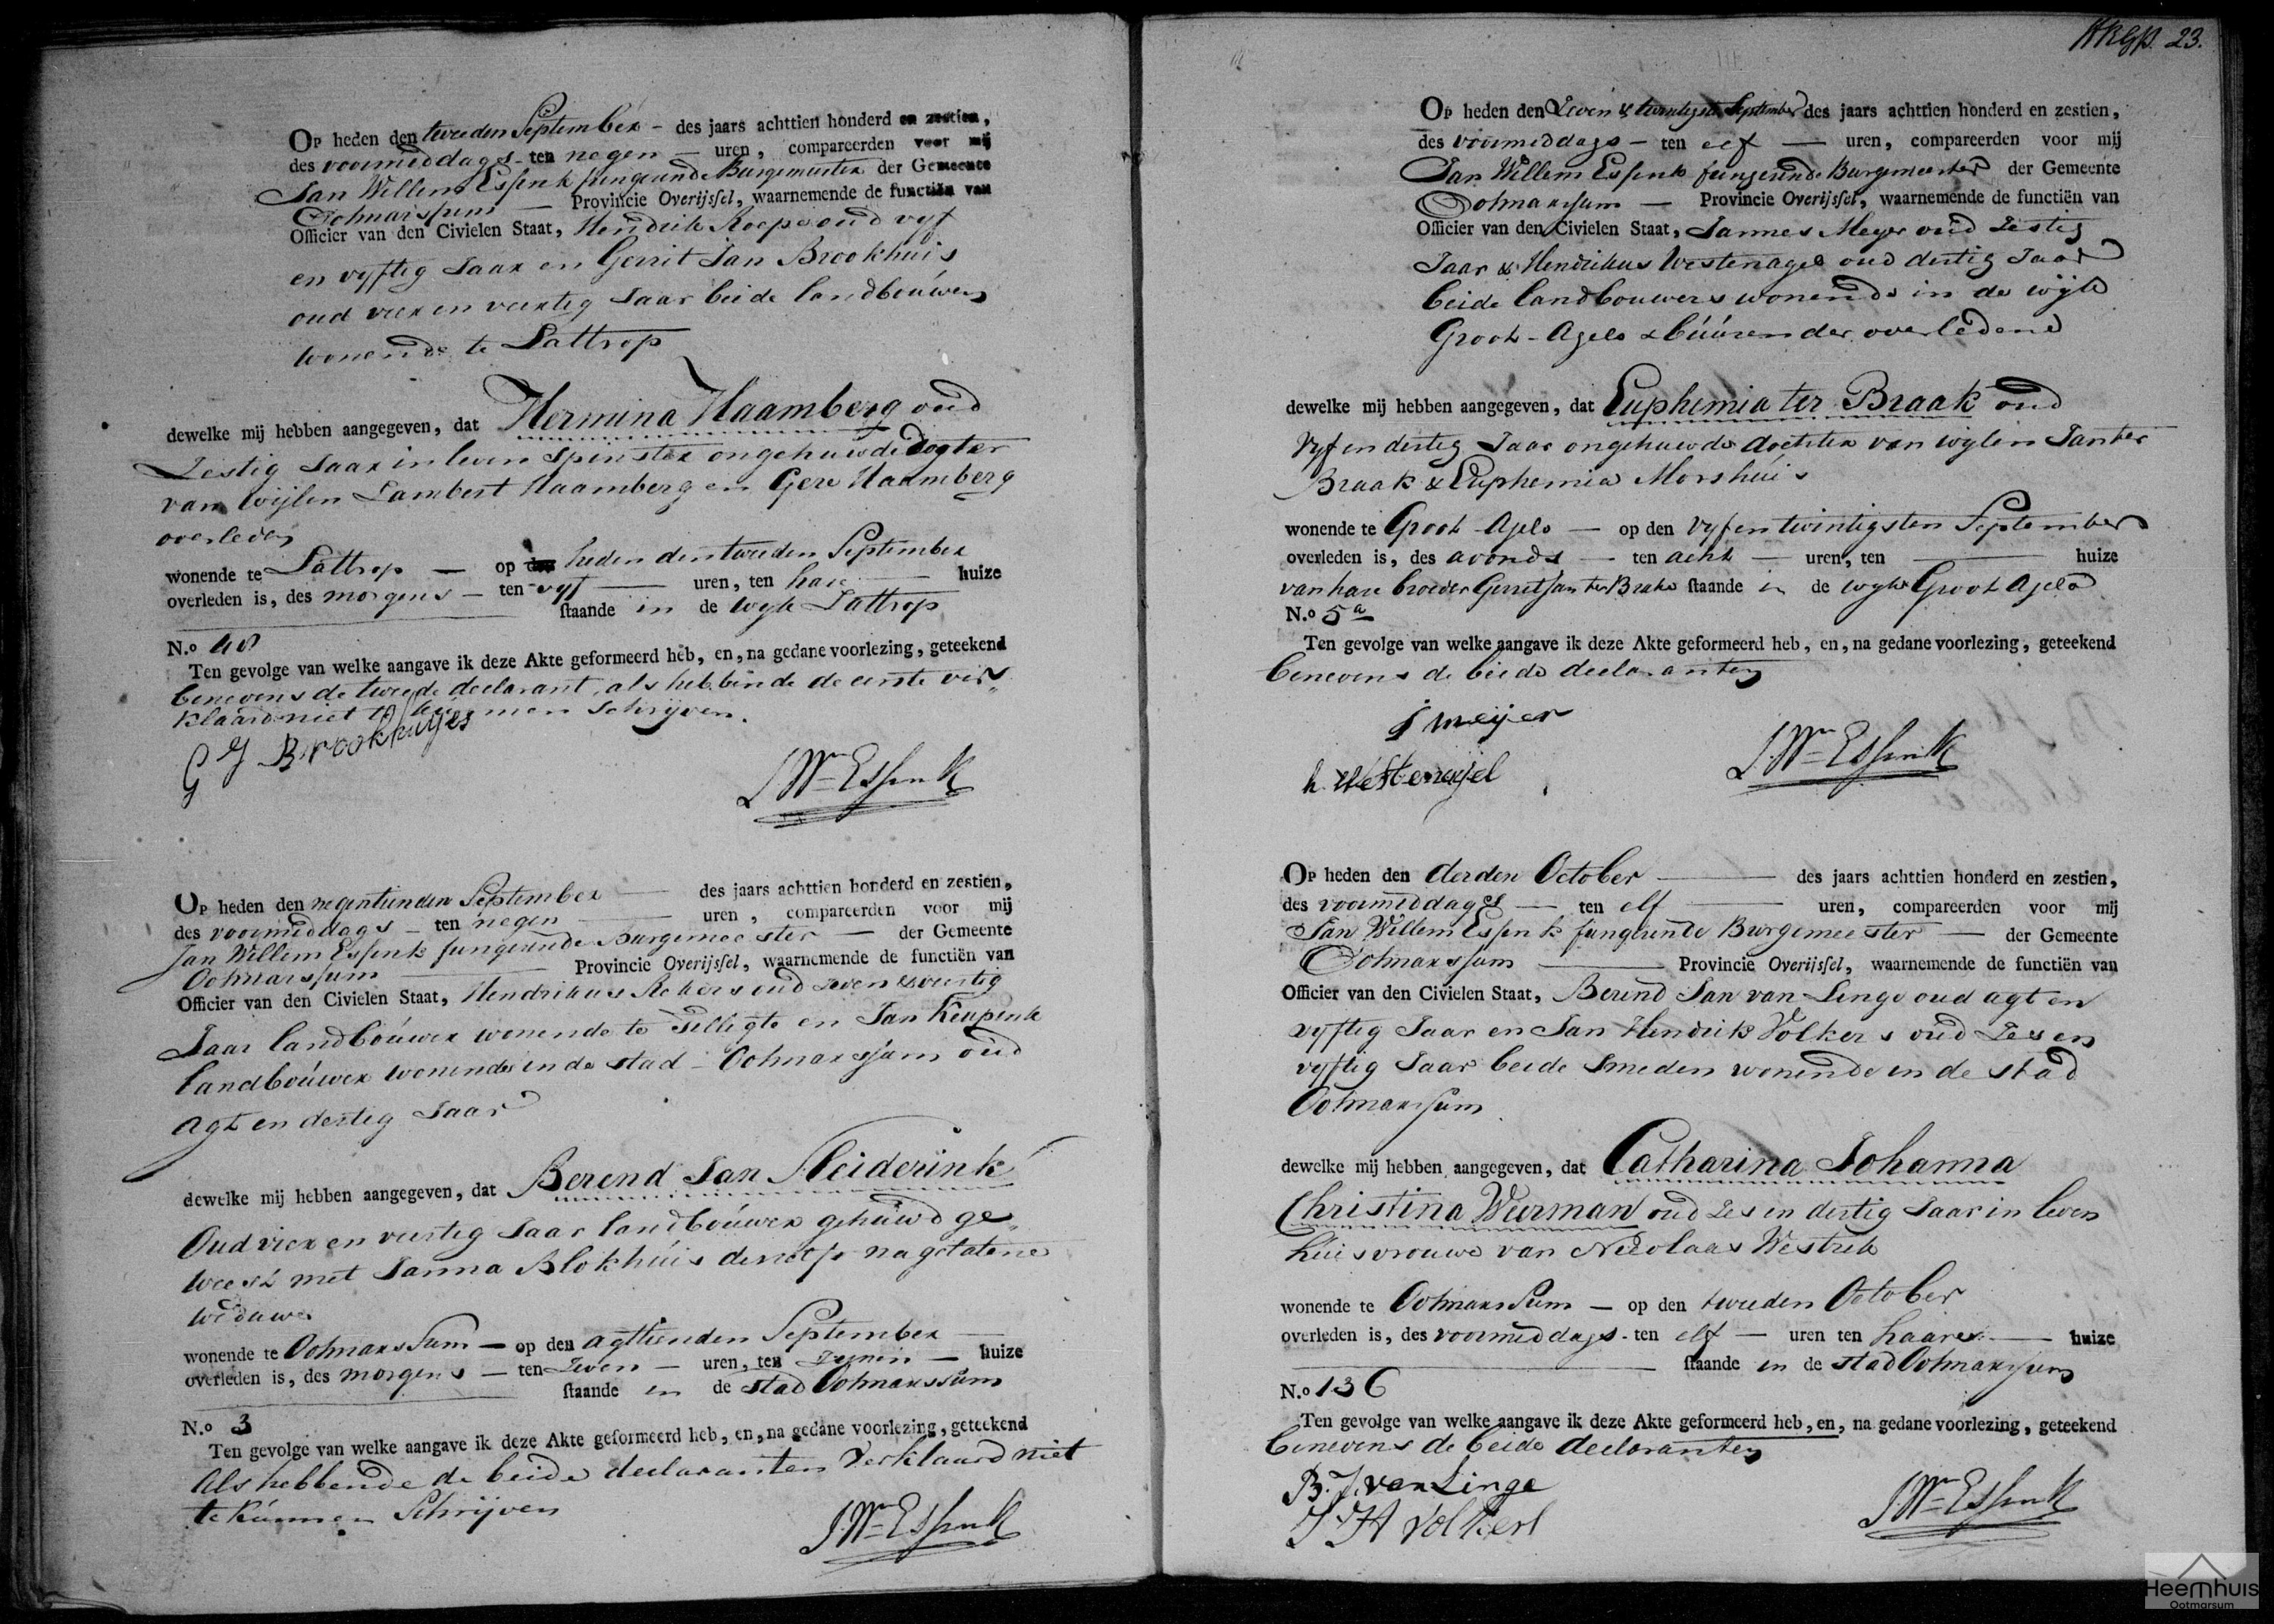 23.
Op heden den tweeden September - des jaars achttien honderd en zestien,
des voormiddags - ten negen - uren, compareerden voor mij
Jan Willem Essink fungeerende Burgemeester der Gemeente
Ootmarssum - Provincie Overijssel, waarnemende de functiën van
Officier van den Civielen Staat, Hendrik oud vyf
en vyftig Jaar en Gerrit Jan Brookhuis
oud vier en veertig Jaar beide landbouwers
wonende te Lattrop
dewelke mij hebben aangegeven, dat Hermina Haamberg oud
Zestig Jaar in leven Spinster ongehuwde Dogter
van wijlen Lambert Haamberg en Gere Haamberg
overleden
wonende te Lattrop - op heden den tweeden September
overleden is, des morgens - ten vyf - uren, ten hare - huize
staande in de wyk Lattrop
N.o 40
Ten gevolge van welke aangave ik deze Akte geformeerd heb, en, na gedane voorlezing, geteekend
benevens de tweede declarant, als hebbende de eerste ver-
klaard niet te kunnen Schryven.
G J Brookhuijes
J Wm Essink
Op heden den negentienden September - des jaars achttien honderd en zestien,
des voormiddags - ten negen - uren, compareerden voor mij
Jan Willem Essink fungeerende Burgemeester - der Gemeente
Ootmarssum - Provincie Overijssel, waarnemende de functiën van
Officier van den Civielen Staat, Hendrikus Rekers oud zeven & veertig
Jaar landbouwer wonende te Tilligte en Jan Keupink
landbouwer wonende in de stad Ootmarssum oud
agt en dertig Jaar
dewelke mij hebben aangegeven, dat Berend Jan
Oud vier en veertig Jaar landbouwer gehuwd ge-
weest met Janna Blokhuis deszelfs nagelatene
weduwe
wonende te Ootmarssum - op den agttienden September -
overleden is, des morgens - ten Zeven - uren, ten zynen - huize
staande in de stad Ootmarssum
N.o 3
Ten gevolge van welke aangave ik deze Akte geformeerd heb, en, na gedane voorlezing, geteekend
als hebbende de beide declaranten verklaard niet
te kunnen Schrijven
J. Wm Essink
Op heden den Zeven & twentigste September des jaars achttien honderd en zestien,
des voormiddags - ten elf - uren, compareerden voor mij
Jan Willem Essink fungerende Burgemeester der Gemeente
Ootmarssum - Provincie Overijssel, waarnemende de functiën van
Officier van den Civielen Staat, Jannes Meyer oud Zestig
Jaar & Hendrikus Westenagel oud dertig Jaar
beide landbouwers wonende in de wyk
Groot-Agelo & buuren der overledene
dewelke mij hebben aangegeven, dat Euphemia ter Braak oud
Vyf en dertig Jaar ongehuwde dochter van wylen Jan ter
Braak & Euphemia Morshuis
wonende te Groot Agelo - op den vyf en twintigsten September
overleden is, des avonds - ten acht - uren, ten - huize
van hare broeder Gerrit Jan ter Brake staande in de wyk Groot Agelo
N.o 5a
Ten gevolge van welke aangave ik deze Akte geformeerd heb, en, na gedane voorlezing, geteekend
benevens de beide declaranten
j meijer
h. Westenagel
J. Wm Essink
Op heden den derden October - des jaars achttien honderd en zestien,
des voormiddags - ten elf - uren, compareerden voor mij
Jan Willem Essink fungerende Burgemeester - der Gemeente
Ootmarssum - Provincie Overijssel, waarnemende de functiën van
Officier van den Civielen Staat, Berend Jan van Linge oud agt en
vyftig Jaar en Jan Hendrik Volkers oud Zes en
vyftig Jaar beide Smeden wonende in de stad
Ootmarssum
dewelke mij hebben aangegeven, dat Catharina Johanna
Christina Weerman oud Zes en dertig Jaar in leven
huisvrouwe van Nicolaas Westrik
wonende te Ootmarssum - op den tweeden October
overleden is, des voormiddags - ten elf - uren ten haare - huize
staande in de stad Ootmarssum
N.o 136
Ten gevolge van welke aangave ik deze Akte geformeerd heb, en, na gedane voorlezing, geteekend
benevens de beide declaranten
B. J. van Linge
J H Volkers
J. Wm Essink
Heemhuis
Ootmarsum